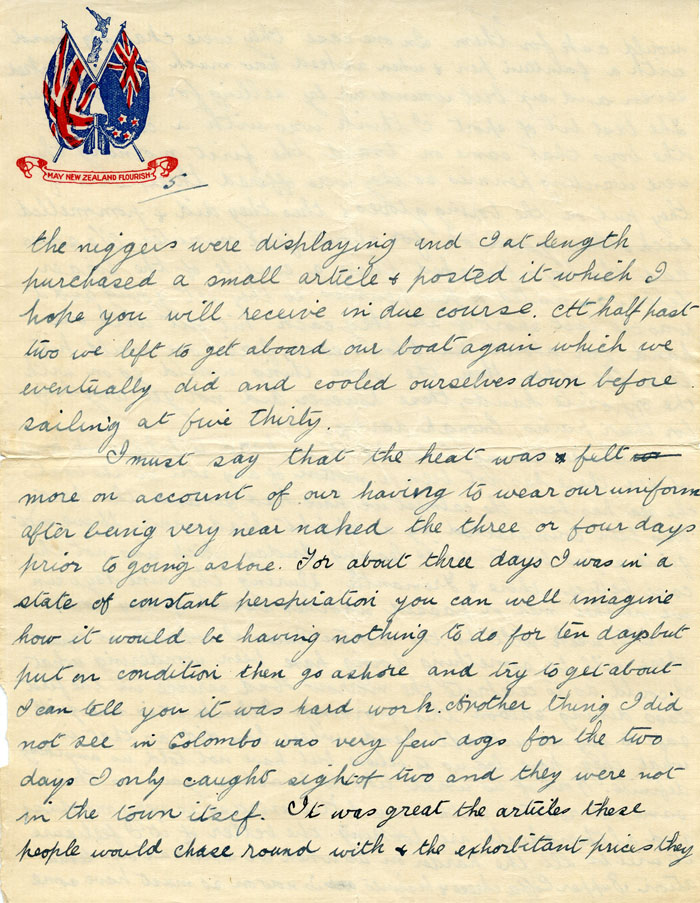 MAY NEW ZEALAND FLOURISH
5.
the niggers were displaying and I at length
purchased a small article & posted it which I
hope you will receive in due course. At half past
two we left to get aboard our boat again which we
eventually did and cooled ourselves down before
sailing at five thirty.
I must say that the heat was & felt
more on account of our having to wear our uniform
after being very near naked the three or four days
prior to going ashore. For about three days I was in a
state of constant perspiration you can well imagine
how it would be having nothing to do for ten days but
put on condition then go ashore and try to get about
I can tell you it was hard work. Another thing I did
not see in Colombo was very few dogs for the two
days I only caught sight of two and they were not
in the town itself. It was great the articles these
people would chase round with & the exhorbitant prices they